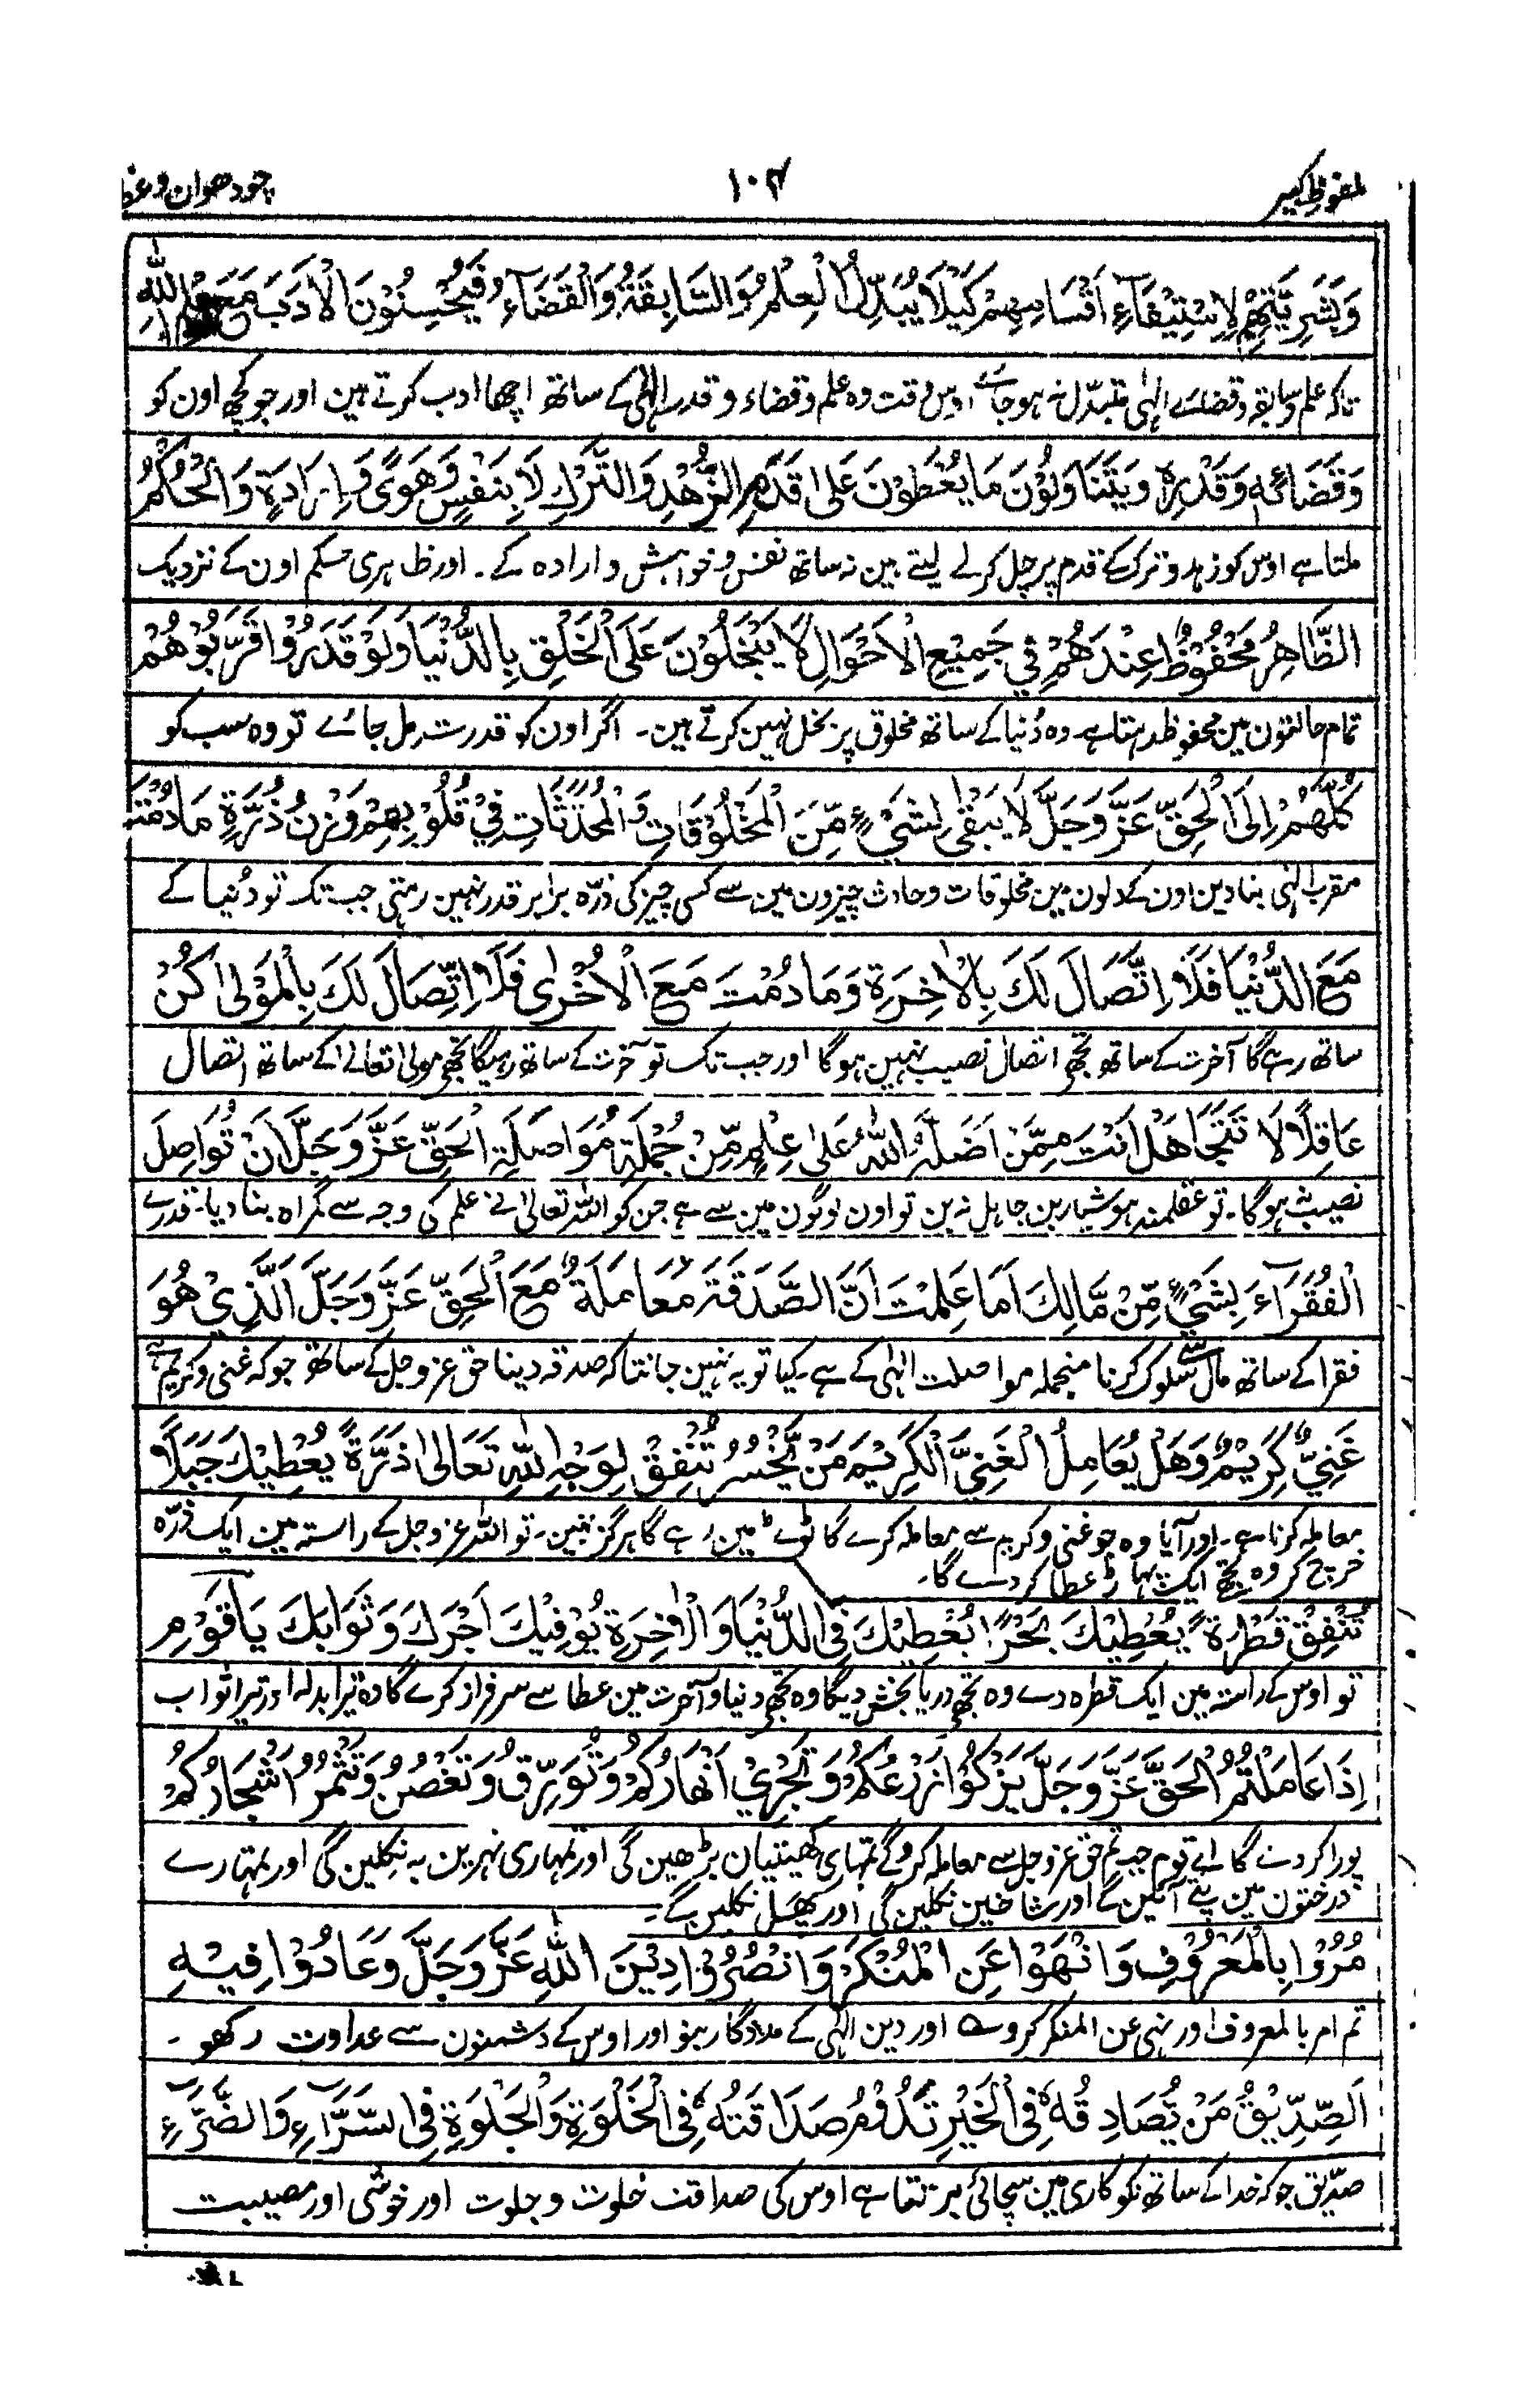 ملفوظ کبیر
۱۰۲
چودھوان وعظ
وَبَشَرِيَّتِهِمْ لِاِسْتِيْفَآءِ اَقْسَامِهِمْ كَيْلَا يُبَدَّلَ الْعِلْمُ وَالسَّابِقَةُ وَالْقَضَآءُ فَيُحْسِنُوْنَ الْاَدَبَ مَعَ اللّٰهِ
تاکہ علم وسابقہ وقضائے الہٰی متبدّل نہ ہو جائے اوس وقت وہ علم وقضاء و قدر الہٰی کے ساتھ اچھا ادب کرتے ہین اور جو کچھ اون کو
وَقَضَائِهٖ وَقَدْرِهٖ وَيَتَنَاوَلُوْنَ مَا يُعْطَوْنَ عَلٰى قَدَمِ الزُّهْدِ وَالتَّرْكِ لَا بِنَفْسٍ وَهَوًى وَاِرَادَةٍ وَالْحُكْمُ
ملتا ہے اوس کو زہد و ترک کے قدم پر چل کر لے لیتے ہین نہ ساتھ نفس و خواہش و ارادہ کے ۔ اور ظاہری حکم اون کے نزدیک
الظَّاهِرُ مَحْفُوْظٌ عِنْدَهُمْ فِيْ جَمِيْعِ الْاَحْوَالِ لَا يَبْخَلُوْنَ عَلَى الْخَلْقِ بِالدُّنْيَا وَلَوْ قَدَرُوْا قَرَّبُوْهُمْ
تمام حالتون مین محفوظ رہتا ہے ۔ وہ دُنیا کے ساتھ مخلوق پر بخل نہین کرتے ہین ۔ اگر اون کو قدرت مل جائے تو وہ سب کو
كُلَّهُمْ اِلَى الْحَقِّ عَزَّ وَجَلَّ لَا يَبْقٰى لِشَيْءٍ مِّنَ الْمَخْلُوْقَاتِ وَالْمُحْدَثَاتِ فِيْ قُلُوْبِهِمْ وَزْنُ ذَرَّةٍ مَا دُمْتَ
مقرب الٰہی بنا دین اون کے دلون مین مخلوقات و حادث چیزون مین سے کسی چیز کی ذرّہ برابر قدر نہین رہتی جب تک تو دُنیا کے
مَعَ الدُّنْيَا فَلَا اِتِّصَالَ لَكَ بِالْاٰخِرَةِ وَمَا دُمْتَ مَعَ الْاُخْرٰى فَلَا اِتِّصَالَ لَكَ بِالْمَوْلٰى كُنْ
ساتھ رہے گا آخرت کے ساتھ تجھے اتصال نصیب نہین ہوگا اور جب تک تو آخرت کے ساتھ رہیگا تجھے مولیٰ تعالےٰ کے ساتھ اتصال
عَاقِلًا لَا تَتَجَاهَلْ اَنْتَ مِمَّنْ اَضَلَّهُ اللّٰهُ عَلٰى عِلْمٍ مِّنْ جُمْلَةِ مُوَاصَلَةِ الْحَقِّ عَزَّ وَجَلَّ اَنْ تُوَاصِلَ
نصیب نہ ہوگا ۔ تو عقلمند ہوشیار بن جاہل نہ بن تو اون لوگون مین سے ہے جن کو اللہ تعالیٰ نے علم کی وجہ سے گمراہ بنا دیا ۔ قدرے
الْفُقَرَآءَ بِشَيْءٍ مِّنْ مَّالِكَ اَمَا عَلِمْتَ اَنَّ الصَّدَقَةَ مُعَامَلَةٌ مَعَ الْحَقِّ عَزَّ وَجَلَّ الَّذِيْ هُوَ
فقرا کے ساتھ مال سے سلوک کرنا منجملہ مواصلت الہٰی کے ہے ۔ کیا تو یہ نہین جانتا کہ صدقہ دینا حق عز وجل کے ساتھ جو کہ غنی و کریم ہے
غَنِيٌّ كَرِيْمٌ وَهَلْ يُعَامِلُ الْغَنِيَّ الْكَرِيْمَ مَنْ يَّخْسُرُ تُنْفِقُ لِوَجْهِ اللّٰهِ تَعَالٰى ذَرَّةً يُعْطِيْكَ جَبَلًا
معاملہ کرنا ہے ۔ اور آیا وہ جو غنی و کریم سے معاملہ کرے گا ٹوٹے مین رہے گا ہرگز نہین ۔ تو اللہ عز وجل کے راستہ مین ایک ذرّہ
خرچ کر وہ تجھے ایک پہاڑ عطا کر دے گا ۔
تُنْفِقُ قَطْرَةً يُعْطِيْكَ بَحْرًا يُعْطِيْكَ فِي الدُّنْيَا وَالْاٰخِرَةِ يُوْفِيْكَ اَجْرَكَ وَثَوَابَكَ يَا قَوْمِ
تو اوس کے راستہ مین ایک قطرہ دے وہ تجھے دریا بخش دیگا وہ تجھے دنیا و آخرت مین عطا سے سرفراز کرے گا وہ تیرا بدلہ اور تیرا ثواب
اِذَا عَامَلْتُمُ الْحَقَّ عَزَّ وَجَلَّ يَزْكُوْا زَرْعُكُمْ وَتَجْرِيْ اَنْهَارُكُمْ وَتُوَرِّقُ وَتَغْصُنُ وَتُثْمِرُ اَشْجَارُكُمْ
پورا کر دے گا اے قوم جب تم حق عز وجل سے معاملہ کروگے تمہاری کھیتیان بڑھین گی اور تمہاری نہرین بہ نکلین گی اور تمہارے
درختون مین پتے آئین گے اور شاخین نکلین گی اور پھل نکلین گے ۔
مُرُوْا بِالْمَعْرُوْفِ وَانْهَوْا عَنِ الْمُنْكَرِ وَانْصُرُوْا دِيْنَ اللّٰهِ عَزَّ وَجَلَّ وَعَادُوْا فِيْهِ
تم امر بالمعروف اور نہی عن المنکر کرو اور دین الٰہی کے مددگار بنو اور اوس کے دشمنون سے عداوت رکھو ۔
اَلصِّدِّيْقُ مَنْ يُّصَادِقُهٗ فِي الْخَيْرِ تَدُوْمُ صَدَاقَتُهٗ فِي الْخَلْوَةِ وَالْجَلْوَةِ فِي السَّرَّآءِ وَالضَّرَّآءِ
صدّیق جو کہ خدا کے ساتھ نکوکاری مین سچائی برتتا ہے اوس کی صداقت خلوت و جلوت اور خوشی اور مصیبت